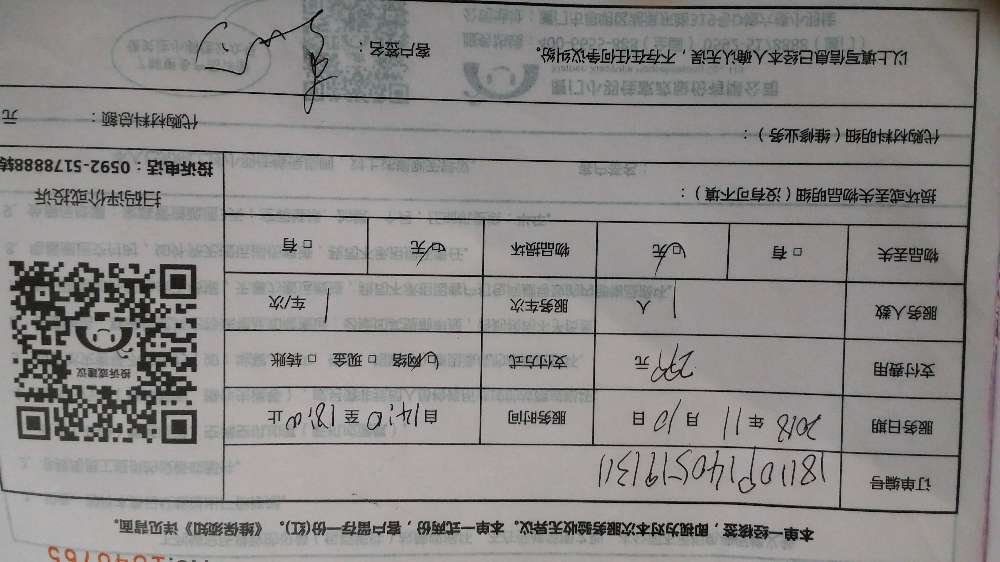 No:1040765
本单一经签签，即视为对本次服务验收无异议。本单一式两份，客户留存一份(红)。《维保须知》详见背面。
订单编号 1811091405191311
服务日期 2018 年 11 月 10 日 服务时间 自 14:10 至 18:10 止
支付费用 299 元 支付方式 ☑网络 □ 现金 □ 转账
服务人数 1 人 服务车次 1 车/次
物品丢失 □ 有 ☑无 物品损坏 ☑无 □ 有
损坏或丢失物品明细(没有可不填)：
扫码评价或投诉
投诉电话：0592-5178888转
投诉或建议
代购材料明细（维修业务）：
代购材料总额： 元
以上填写信息已经本人确认无误，不存在任何争议纠纷。 客户签名：